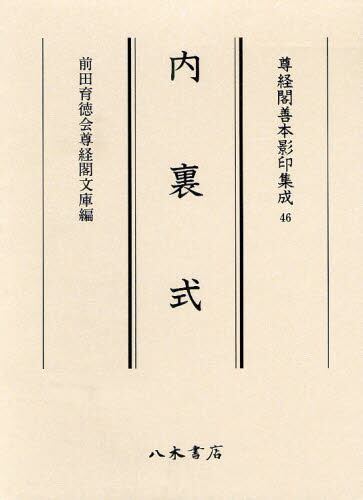 尊経閣善本影印集成 46
内裏式
前田育徳会尊経閣文庫編
八木書店